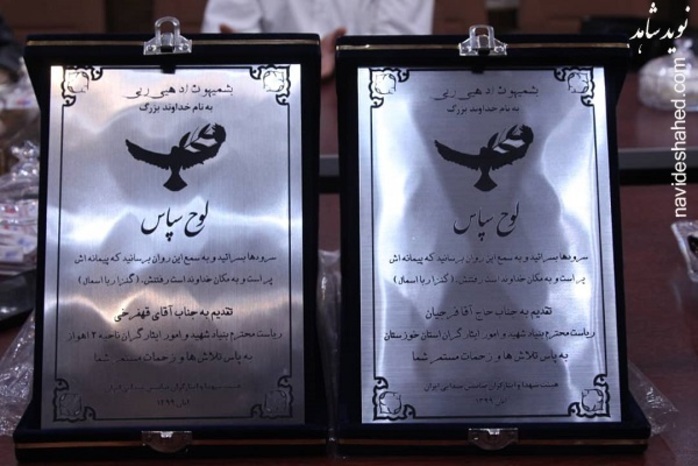 نوید شاهد
navideshahed.com
به نام خداوند بزرگ
لوح سپاس
سرودها بسرائید و به سمع این روان برسانید که پیمانه اش
پر است و به مکان خداوند است رفتنش. (گنزا ربا اسمال)
تقدیم به جناب آقای قهفرخی
ریاست محترم بنیاد شهید و امور ایثارگران ناحیه ۲ اهواز
به پاس تلاش ها و زحمات مستمر شما
هیئت شهدا و ایثارگران صابئین مندائی
آبان ۱۳۹۹
به نام خداوند بزرگ
لوح سپاس
سرودها بسرائید و به سمع این روان برسانید که پیمانه اش
پر است و به مکان خداوند است رفتنش. (گنزا ربا اسمال)
تقدیم به جناب حاج آقا فرجیان
ریاست محترم بنیاد شهید و امور ایثارگران استان خوزستان
به پاس تلاش ها و زحمات مستمر شما
هیئت شهدا و ایثارگران صابئین مندائی ایران
آبان ۱۳۹۹